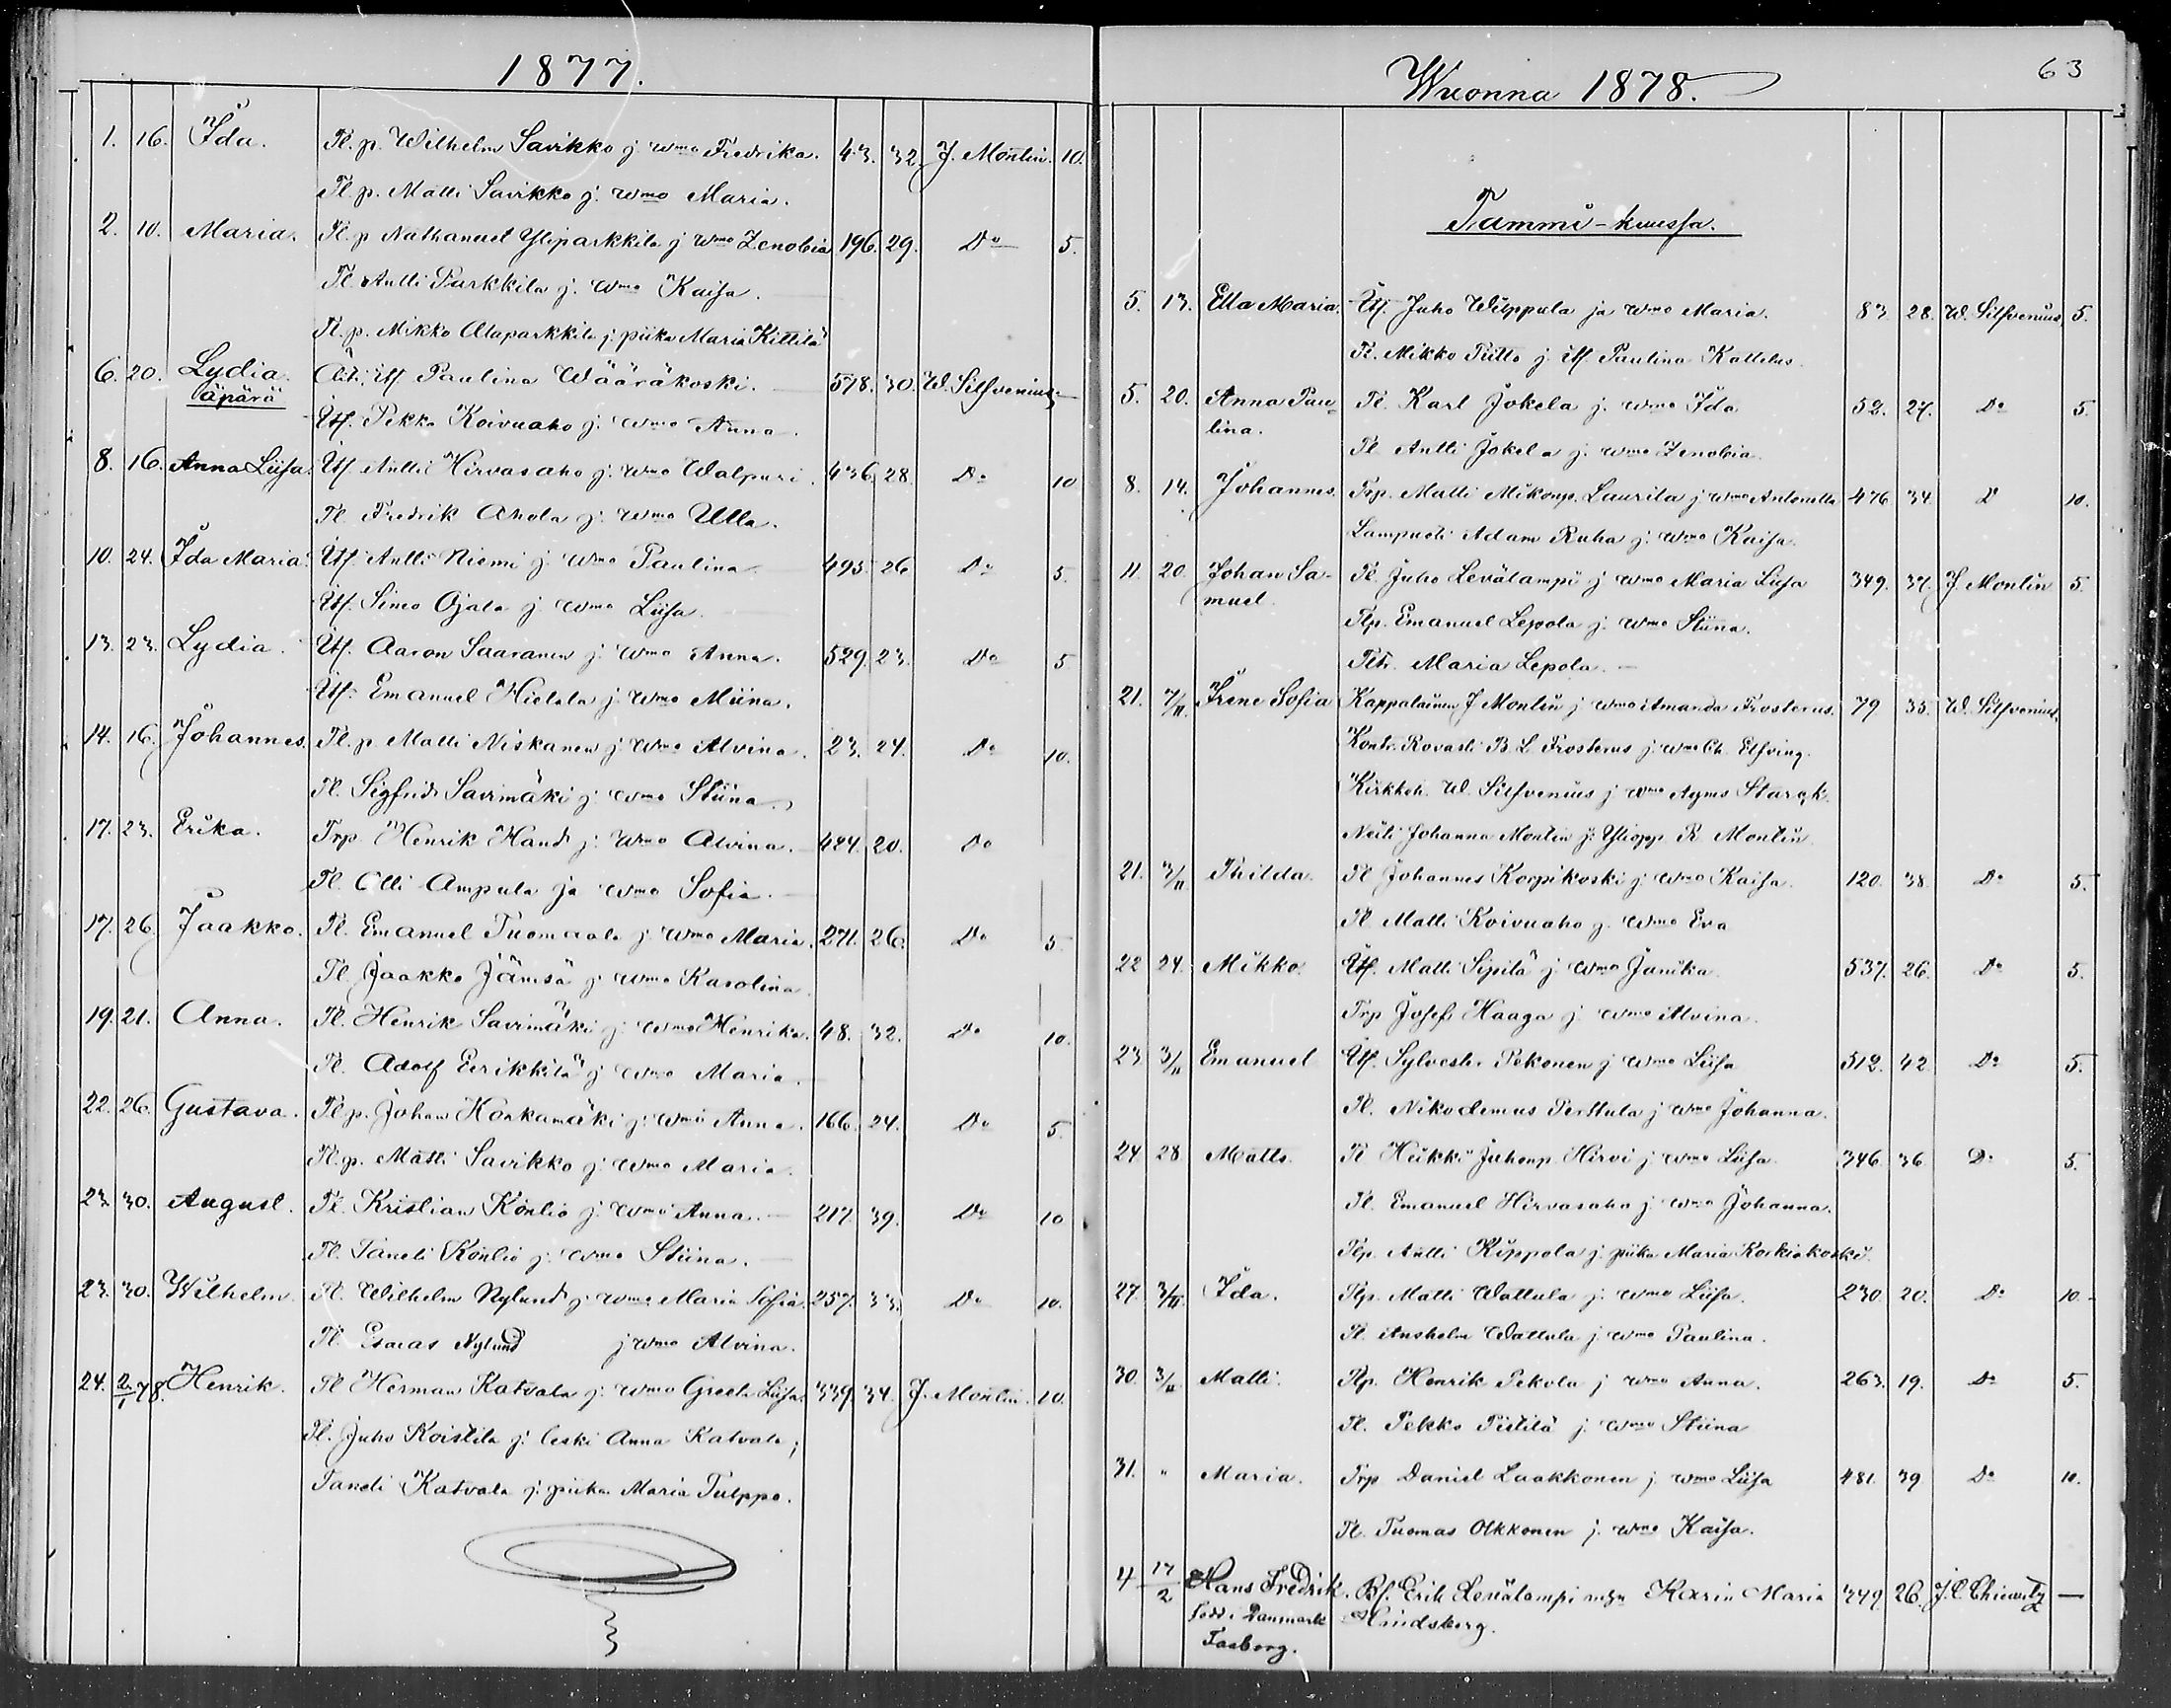 1877.
1. 16. Ida. Tl. p. Wilhelm Savikko j. wmo Fredrika. 43. 32. J. Montin. 10.
Tl. p. Matti Savikko j. wmo Maria.
2. 10. Maria. Tl. p Nathanael Yliparkkila j wmo Zenobia 196. 29. Do 5.
Tl. Antti Parkkila j. wmo Kaisa.
Tl. p. Mikko Alaparkkila j. piika Maria Kittilä
6. 20. Lydia. Äiti, Itl Paulina Wääräkoski. 578. 30. W. Silfvenius —
äpärä
Itl. Pekka Koivuaho j. wmo Anna.
8. 16. Anna Liisa. Itl Antti Hirvasaho j. wmo Walpuri. 436 28. Do 10
Tl. Fredrik Ahola j. wmo Ulla.
10. 24. Ida Maria. Itl. Antti Niemi j. wmo Paulina. 495. 26 Do 5.
Itl. Simo Ojala j wmo Liisa.
13. 23. Lydia. Itl. Aaron Saaranen j. wmo Anna. 529. 23. Do 5.
Itl. Emanuel Hietala j. wmo Miina.
14. 16. Johannes. Tl. p. Matti Niskanen j. wmo Alvina. 23. 24. Do 10.
Tl. Sigfrid Savimäki j. wmo Stiina.
17. 23. Erika. Trp Henrik Hand j. wmo Alvina. 424. 20. Do
Tl. Olli Ampula ja wmo Sofia.
17. 26. Jaakko. Tl. Emanuel Tuomaala j. wmo Maria. 271. 26. Do 5.
Tl Jaakko Jämsä j. wmo Karolina.
19. 21. Anna. Tl. Henrik Savimäki j. wmo Henrika. 48. 32. Do 10.
Tl. Adolf Eerikkilä j wmo Maria.
22. 26. Gustava. Tl p. Johan Korkamäki j. wmo Anna. 166. 24. Do 5.
Tl. p. Matti Savikko j. wmo Maria.
23. 30. August. Tl. Kristian Köntiö j. wmo Anna. 217. 39. Do 10
Tl. Taneli Köntiö j. wmo Stiina.
23. 30. Wilhelm. Tl. Wilhelm Nylund j. wmo Maria Sofia. 257. 33. Do 10.
Tl Esaias Nylund j wmo Alvina.
24. 2/1 78. Henrik. Tl Herman Katvala j. wmo Greeta Liisa. 339. 34. J. Montin. 10.
Tl. Juho Koistila j. leski Anna Katvala;
Taneli Katvala j. piika Maria Tulppo.
63
Wuonna 1878.
Tammi-kuussa.
5. 13. Ella Maria. Itl. Juho Wilppula ja wmo Maria. 83 28. W. Silfvenius 5.
Tl. Mikko Piitto j. Itl Paulina Kattelus
5. 20. Anna Pau- Tl. Karl Jokela j. wmo Ida 52. 27. Do 5.
lina. Tl Antti Jokela j. wmo Zenobia
8. 14. Johannes. Trp. Matti Mikonp. Laurila j wmo Antonetta 476 34 D 10.
Lampuoti Adam Ruha j. wmo Kaisa.
11. 20. Johan Sa- Tl. Juho Levälampi j wmo Maria Liisa 349. 37. J. Montin 5.
muel. Tlp. Emanuel Lepola j. wmo Stiina.
Tltr. Maria Lepola.
21. 7/II. Irene Sofia Kappalainen J Montin j wmo Amanda Frosterus. 79 35. W. Silfvenius
Kontr. Rovasti B. L. Frosterus j. wmo Ch. Elfving.
Kirkkoh. W. Silfvenius j wmo Agnes Starck.
Neiti Johanna Montin j. Yliopp. R Montin
21. 3/II Thilda. Tl Johannes Korpikoski j. wmo Kaisa. 120. 38. Do 5.
Tl Matti Koivuaho j. wmo Eva
22 24. Mikko. Itl. Matti Sipilä j wmo Janika. 537. 26. Do 5.
Trp Josef Haaga j wmo Alvina.
23 3/II Emanuel Itl. Sylvester Pekonen j wmo Liisa 512. 42 Do 5.
Tl. Nikodemus Perttula j wmo Johanna.
24 28 Matts. Tl Heikki Juhonp. Hirvi j wmo Liisa 346 36 Do 5.
Tl. Emanuel Hirvasaho j. wmo Johanna.
Tlp. Antti Kippola j. piika Maria Koskiokoski.
27. 3/II Ida. Tlp. Matti Wattula j. wmo Liisa. 230 20. Do 10.
Tl. Anshelm Wattula j. wmo Paulina.
30. 3/II Matti. Tlp. Henrik Pekola j wmo Anna. 263. 19. Do 5.
Tl. Pekka Pietilä j. wmo Stiina
31. " Maria. Trp Daniel Laakkonen j. wmo Liisa 481. 39 Do 10.
Tl. Tuomas Okkonen j. wmo Kaisa.
4 17/2 Hans Fredrik. Bf. Erik Levälampi Karin Maria 349. 26. J. C. Chiewitz —
född i Danmark Hindsberg.
Faaborg.